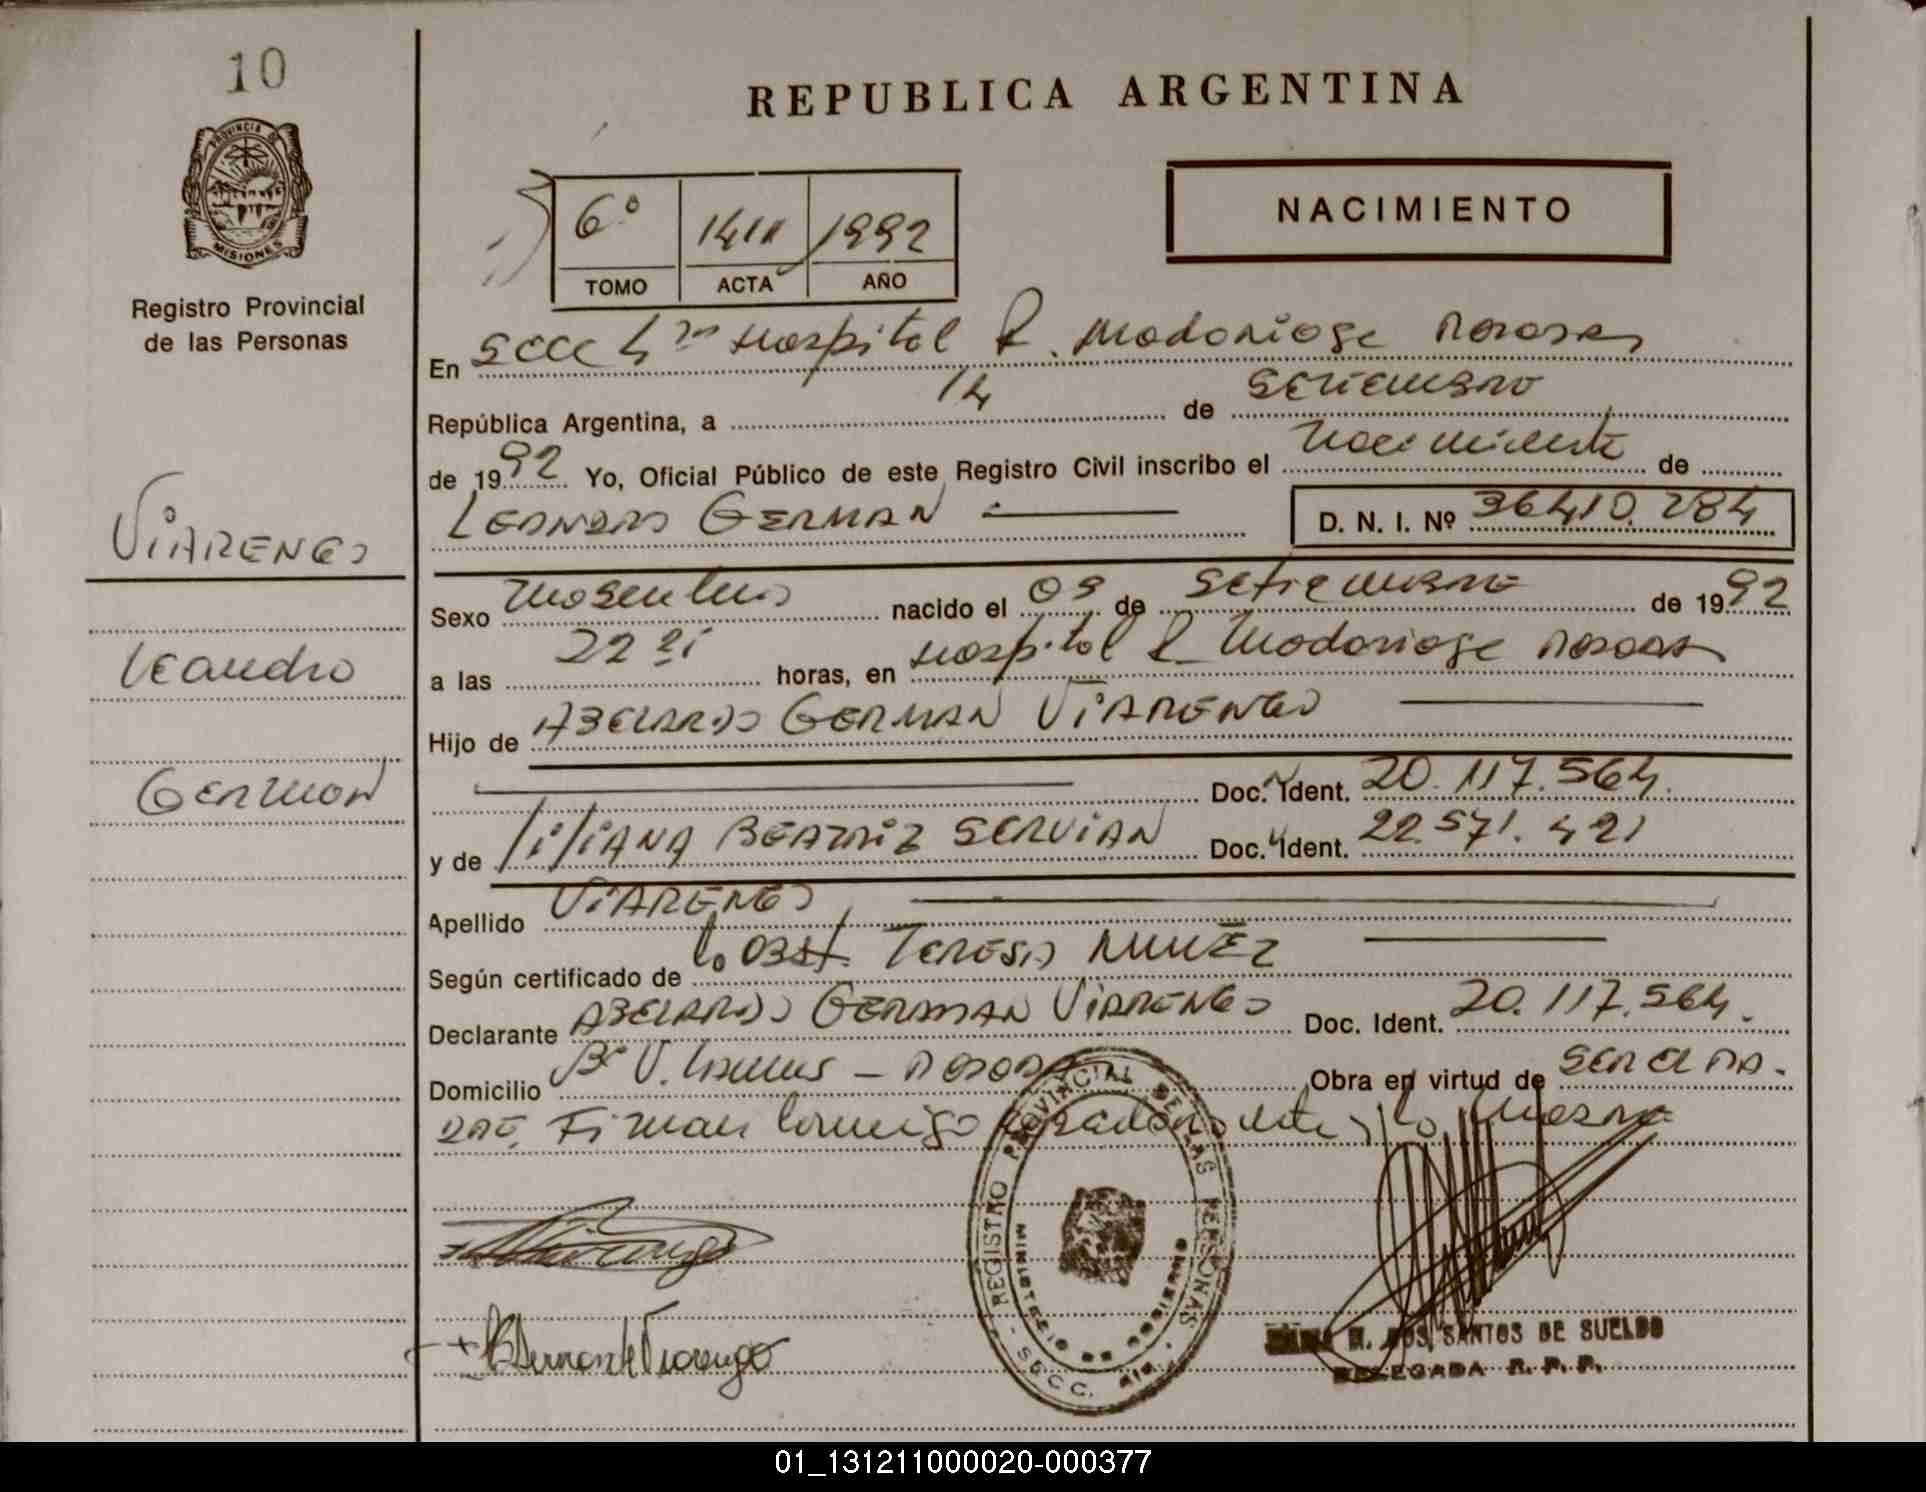 10
PROVINCIA DE
MISIONES
Registro Provincial
de las Personas
VIARENGO
Leandro
German
REPUBLICA ARGENTINA
6º 1411 1992
TOMO ACTA AÑO
NACIMIENTO
En Secc 4ta Hospital R. Madariaga Posadas
República Argentina, a 14 de SETIEMBRE
de 1992 Yo, Oficial Público de este Registro Civil inscribo el Nacimiento de
LEANDRO GERMAN
D. N. I. Nº 36.410.284
Sexo Masculino nacido el 09 de Setiembre de 1992
a las 22 21 horas, en Hospital R. Madariaga Posadas
Hijo de ABELARDO GERMAN VIARENGO
Doc. Ident. 20.117.564
y de LILIANA BEATRIZ SERVIAN Doc. Ident. 22.571.421
Apellido VIARENGO
Según certificado de la OBST. TERESA NUÑEZ
Declarante ABELARDO GERMAN VIARENGO Doc. Ident. 20.117.564.
Domicilio Bº V. - POSADAS Obra en virtud de SER EL PA-
DRE, Firman conmigo y la MADRE
Viarengo
de Viarengo
REGISTRO PROVINCIAL DE LAS PERSONAS
MINISTERIO DE GOBIERNO
SECC.
M. DOS SANTOS DE SUELDO
DELEGADA R. P. P.
01_131211000020-000377